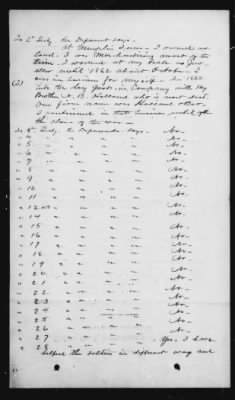 To 2d Intg. the Deponent says -
At Memphis Tenn - I owned no
land. I was Merchandising most of the
time. I worked at my trade as Jew
eller until 1862 about October - I
was in business for myself - In 1862
into the Dry Goods in Company with My
Brother
Our firm name was Holland & Bro.
I continued in that business until after
the close of the war -
(2)
To 3d Intg. the Deponent says - No -
" 4 " " " No -
" 5 " " " No -
" 6 " " " No -
" 7 " " " No -
" 8 " " " No -
" 9 " " " No -
" 10 " " " No -
" 11 " " " No -
" 12 " " " No -
" 14 " " " No -
" 15 " " " No -
" 16 " " " No -
" 17 " " " No -
" 18 " " " No -
" 19 " " " No -
" 20 " " " No -
" 21 " " " No -
" 22 " " " No -
" 23 " " " No -
" 24 " " " No -
" 25 " " " No -
" 26 " " " No -
" 27 " " " No -
" 28 " " " Yes. I have
helped the soldiers in different ways and